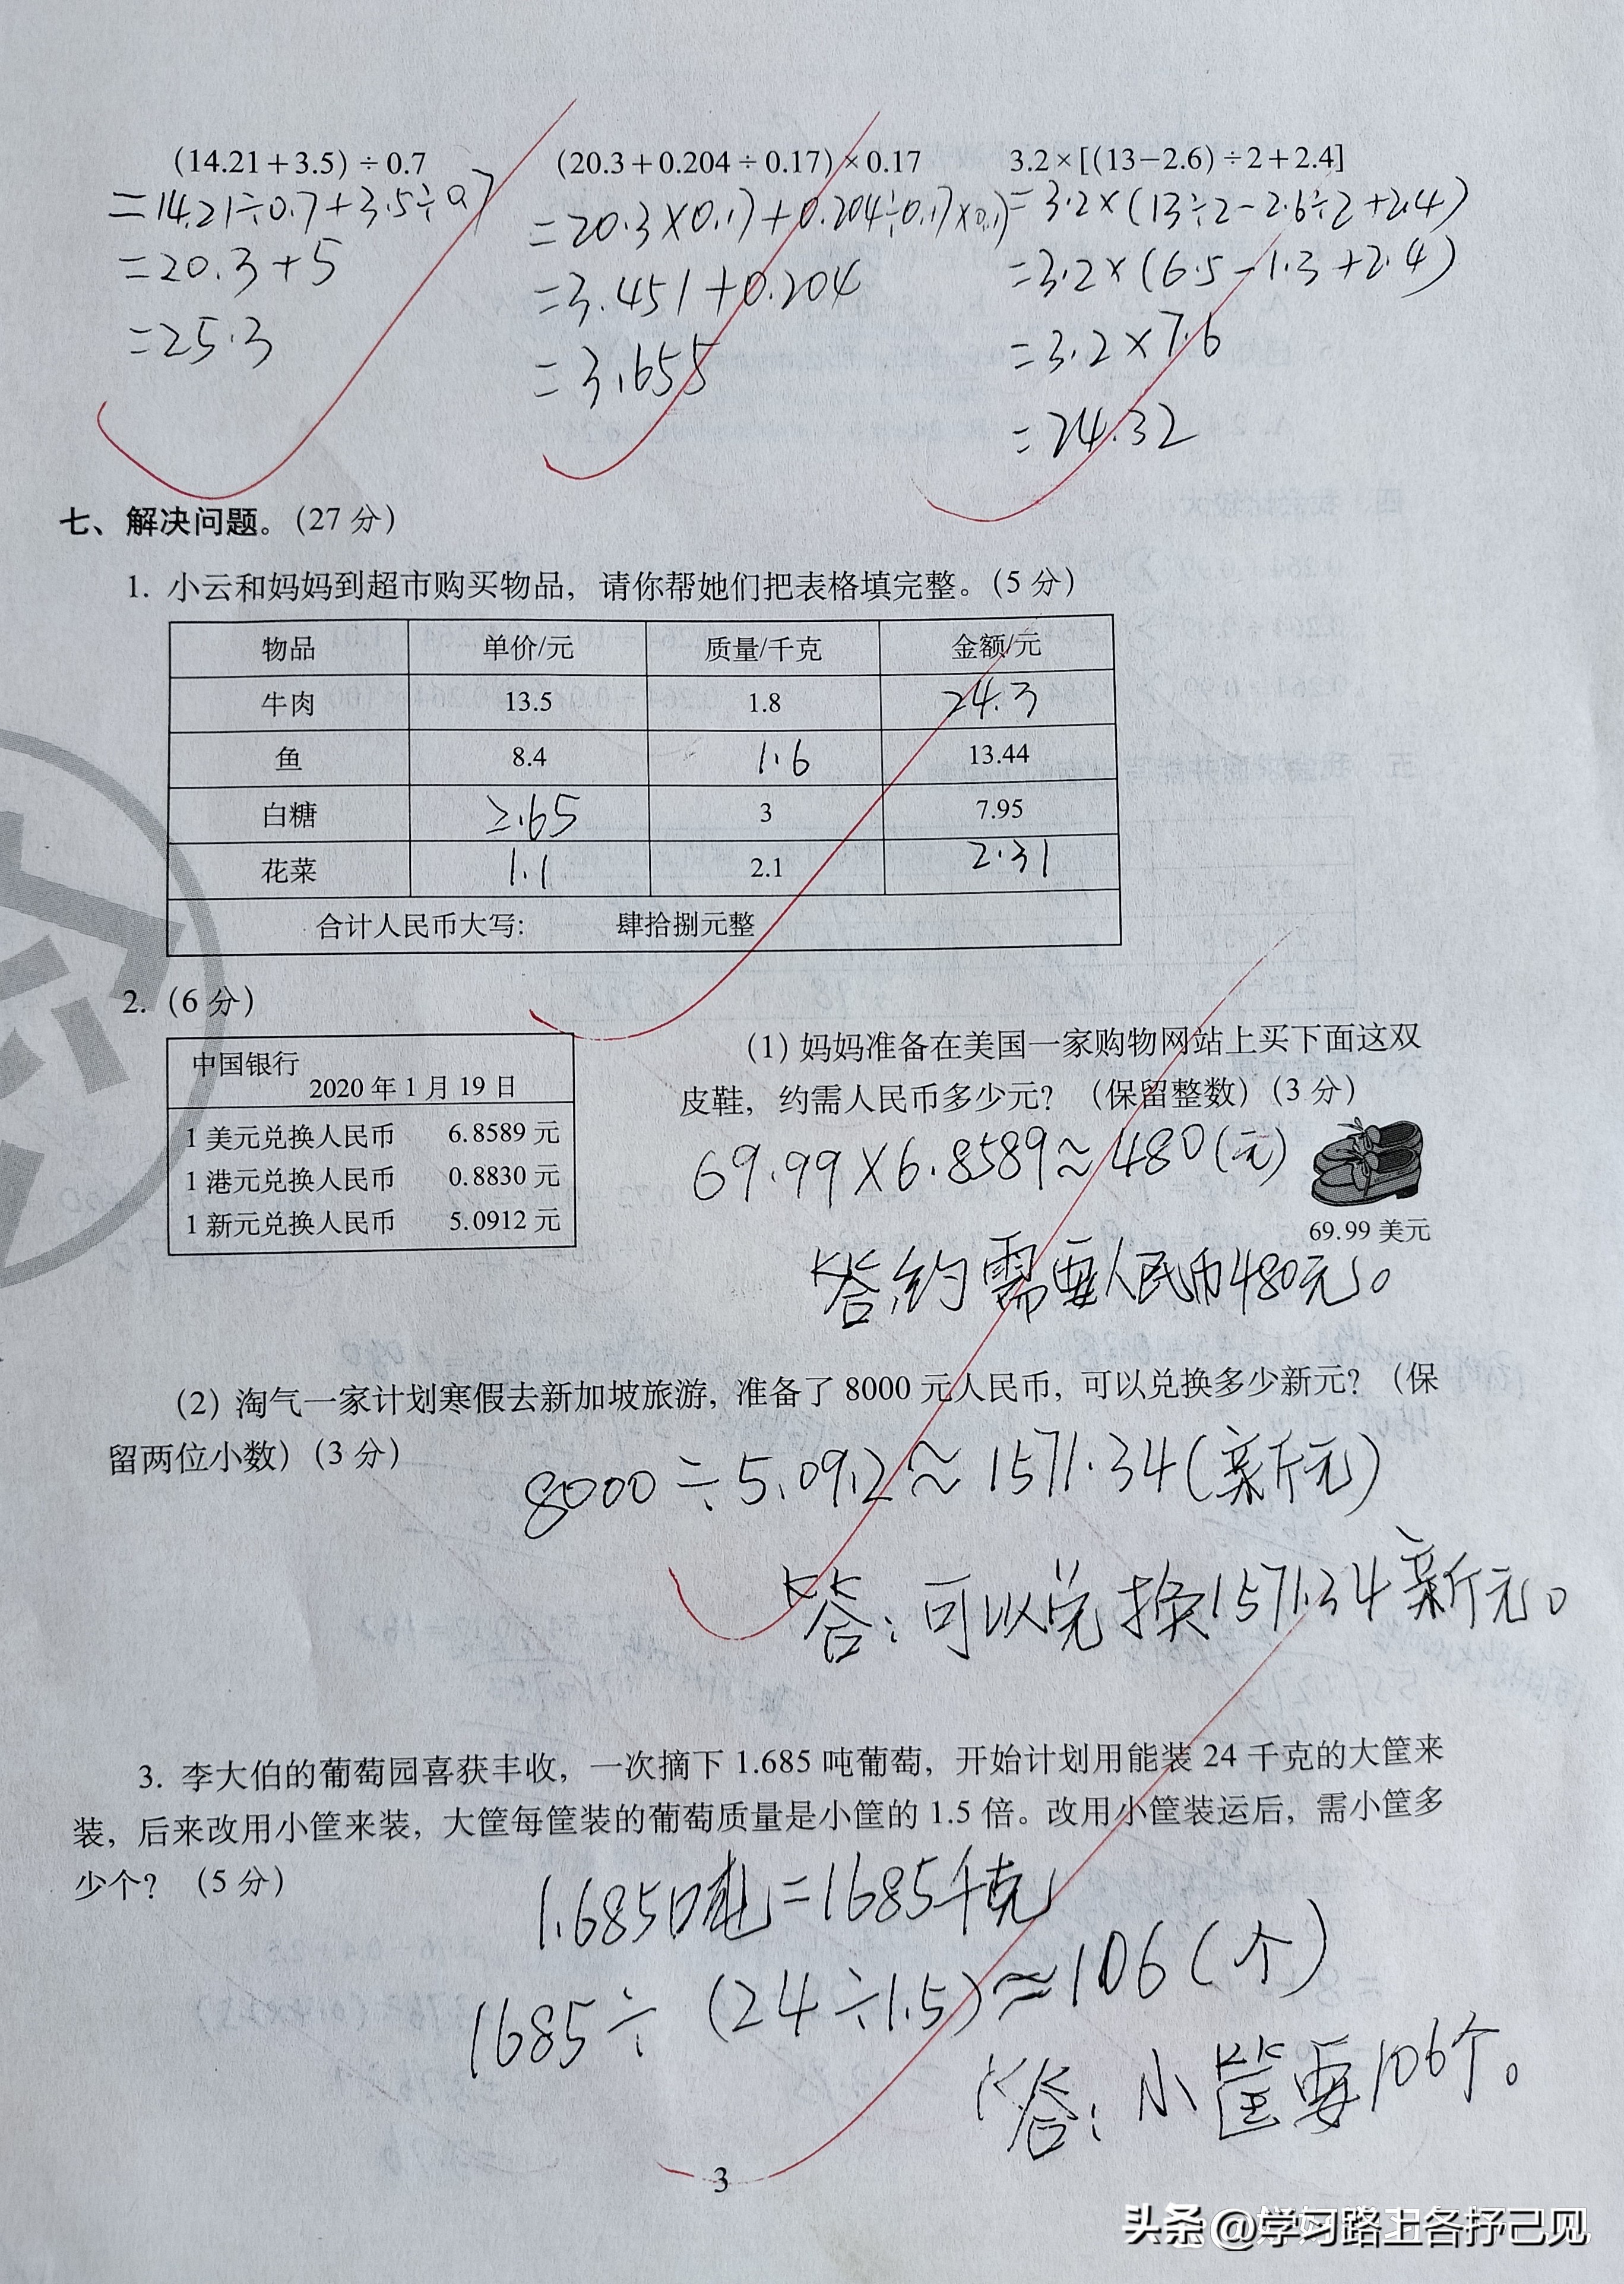 (14.21+3.5)÷0.7  (20.3+0.204÷0.17)×0.17  3.2×[(13−2.6)÷2+2.4]
=14.21÷0.7+3.5÷0.7  =20.3×0.17+0.204÷0.17×0.17  =3.2×(13÷2−2.6÷2+2.4)
=20.3+5  =3.451+0.204  =3.2×(6.5−1.3+2.4)
=25.3  =3.655  =3.2×7.6
=24.32
七、解决问题。(27 分)
1. 小云和妈妈到超市购买物品，请你帮她们把表格填完整。(5 分)
物品  单价/元  质量/千克  金额/元
牛肉  13.5  1.8  24.3
鱼  8.4  1.6  13.44
白糖  2.65  3  7.95
花菜  1.1  2.1  2.31
合计人民币大写:  肆拾捌元整
2. (6 分)
中国银行
2020 年 1 月 19 日
1 美元兑换人民币  6.8589 元
1 港元兑换人民币  0.8830 元
1 新元兑换人民币  5.0912 元
(1) 妈妈准备在美国一家购物网站上买下面这双
皮鞋，约需人民币多少元？(保留整数)(3 分)
69.99×6.8589≈480(元)
69.99 美元
答:约需要人民币480元。
(2) 淘气一家计划寒假去新加坡旅游，准备了 8000 元人民币，可以兑换多少新元？(保
留两位小数)(3 分)
8000÷5.0912≈1571.34(新元)
答:可以兑换1571.34新元。
3. 李大伯的葡萄园喜获丰收，一次摘下 1.685 吨葡萄，开始计划用能装 24 千克的大筐来
装，后来改用小筐来装，大筐每筐装的葡萄质量是小筐的 1.5 倍。改用小筐装运后，需小筐多
少个？(5 分)
1.685吨=1685千克
1685÷(24÷1.5)≈106(个)
答:小筐要106个。
3
头条 @学习路上各抒己见